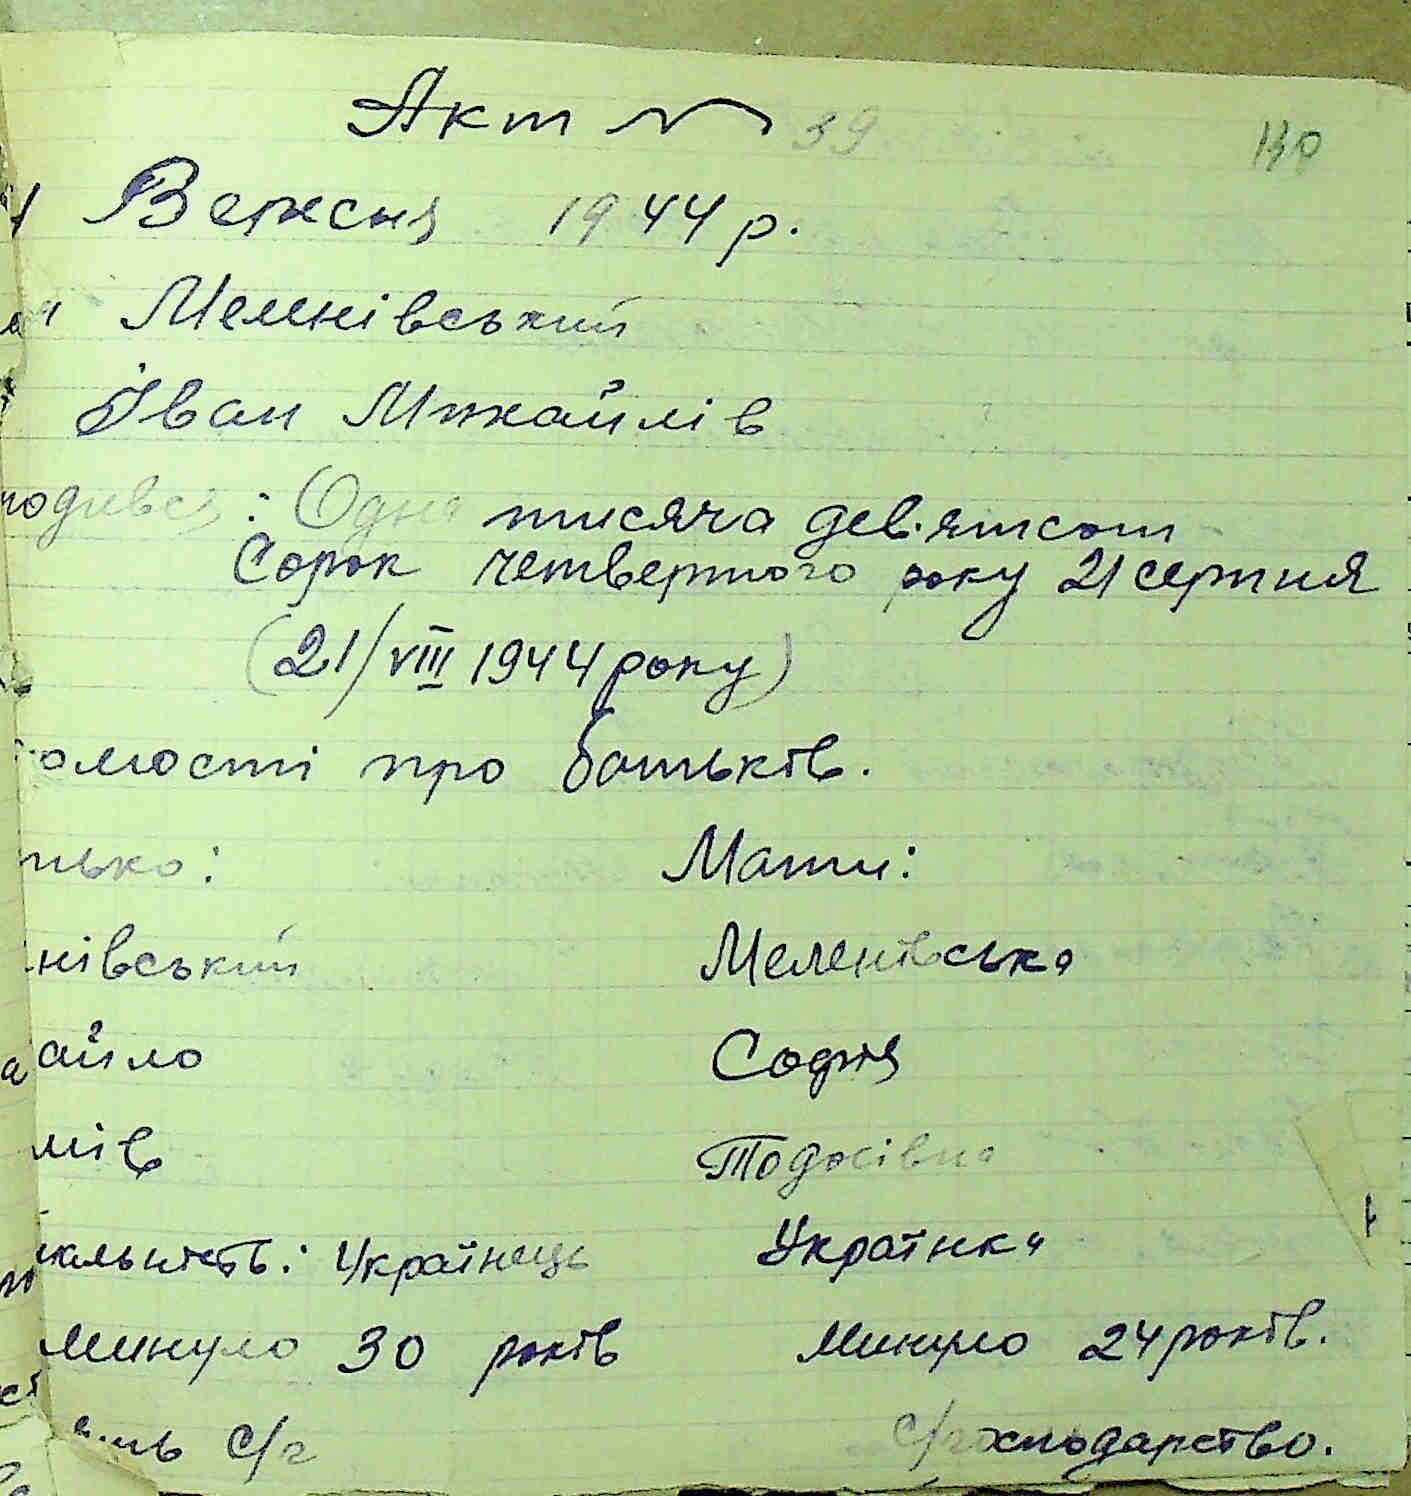 Акт № 39
130
Вересня 1944 р.
Меленівський
Іван Михайлів
родився: Одна тисяча дев'ятсот
Сорок четвертого року 21 серпня
(21/VIII 1944 року)
омості про батьків.
тько: Мати:
нівський Меленівська
айло Софія
мів Тодосівна
нальність: Українець Українка
минуло 30 років минуло 24 років.
с/г с/господарство.